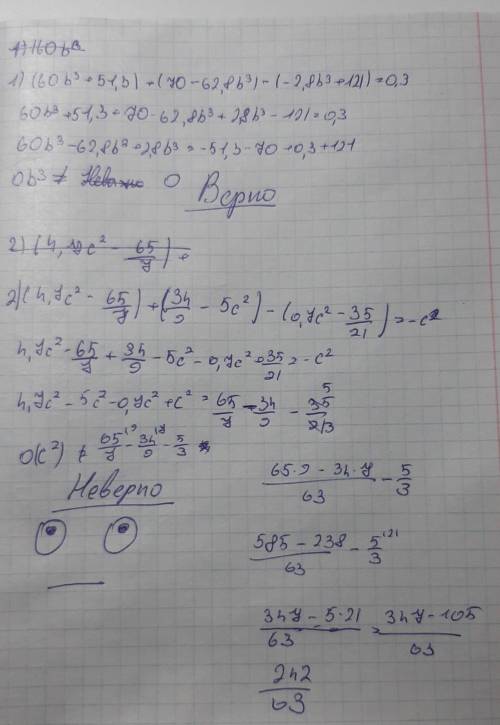 1) 160b³
1) (60b³+51,3)+(70-62,8b³)-(-2,8b³+121)=0,3
60b³+51,3+70-62,8b³+2,8b³-121=0,3
60b³-62,8b²+2,8b³=-51,3-70+0,3+121
0b³ ≠ Неверно 0 Верно
2) (4,7c² - 65/7) +
2) (4,7c² - 65/7) + (34/9 - 5c²) - (0,7c² - 35/21) = -c²
4,7c² - 65/7 + 34/9 - 5c² - 0,7c² + 35/21 = -c²
4,7c² - 5c² - 0,7c² + c² = 65/7 - 34/9 - 35/21 5 3
0(c²) ≠ 65/7 - 34/9 - 5/3
Неверно
(65·9-34·7)/63 - 5/3
(585-238)/63 - 5/3
(347-5·21)/63 = (347-105)/63
242/63